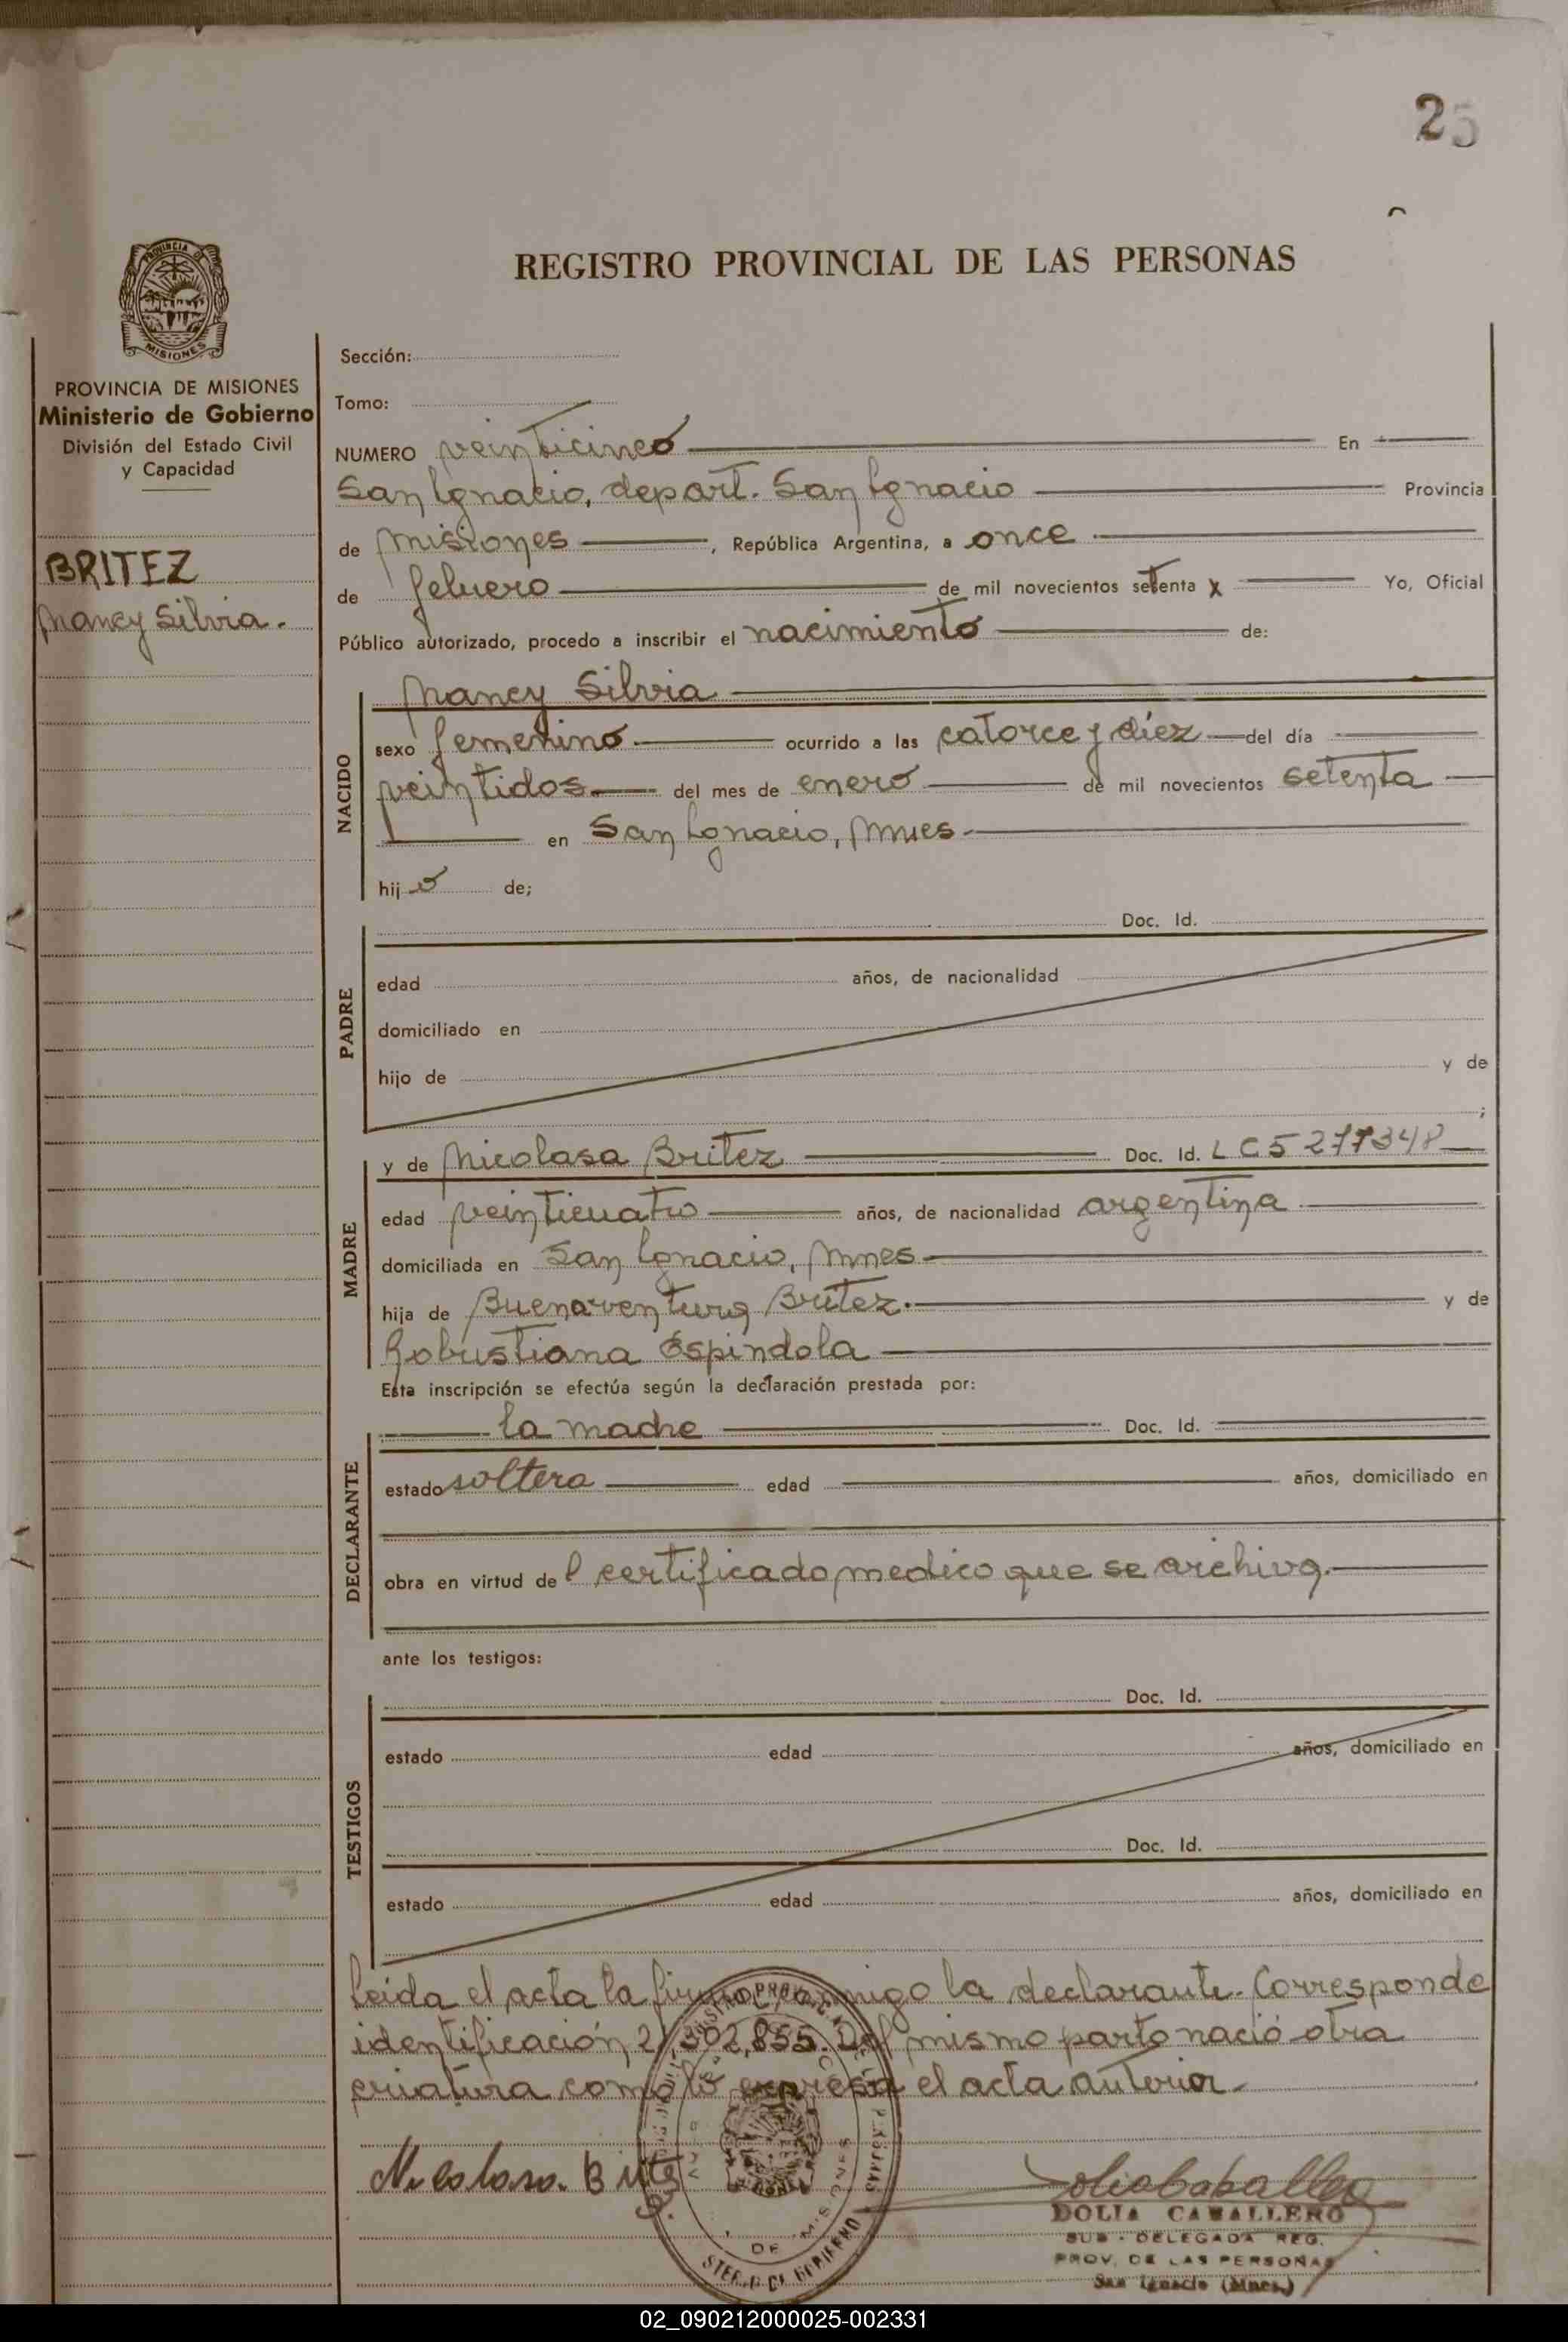 25
REGISTRO PROVINCIAL DE LAS PERSONAS
PROVINCIA DE
MISIONES
PROVINCIA DE MISIONES
Ministerio de Gobierno
División del Estado Civil
y Capacidad
BRITEZ
Nancy Silvia.
Sección:
Tomo:
NUMERO veinticinco En
San Ignacio, depart. San Ignacio Provincia
de Misiones , República Argentina, a once
de febrero de mil novecientos setenta x Yo, Oficial
Público autorizado, procedo a inscribir el nacimiento de:
NACIDO
Nancy Silvia
sexo femenino ocurrido a las catorce y diez del día
veintidos del mes de enero de mil novecientos setenta
en San Ignacio, Mnes
hij de;
PADRE
Doc. Id.
edad años, de nacionalidad
domiciliado en
hijo de y de
;
MADRE
y de Nicolasa Britez Doc. Id. LC 5277348
edad veinticuatro años, de nacionalidad argentina
domiciliada en San Ignacio, Mnes
hija de Buenaventura Britez. y de
Robustiana Espindola
Esta inscripción se efectúa según la declaración prestada por:
DECLARANTE
la madre Doc. Id.
estado soltera edad años, domiciliado en
obra en virtud de l certificado medico que se archiva.
ante los testigos:
TESTIGOS
Doc. Id.
estado edad años, domiciliado en
Doc. Id.
estado edad años, domiciliado en
Leida el acta la firma conmigo la declarante. Corresponde
identificación 21,302,855. Del mismo parto nació otra
criatura como lo expresa el acta anterior.
Nicolasa. Britez
DOLIA CABALLERO
SUB - DELEGADA REG.
PROV. DE LAS PERSONAS
San Ignacio (Mnes.)
02_090212000025-002331